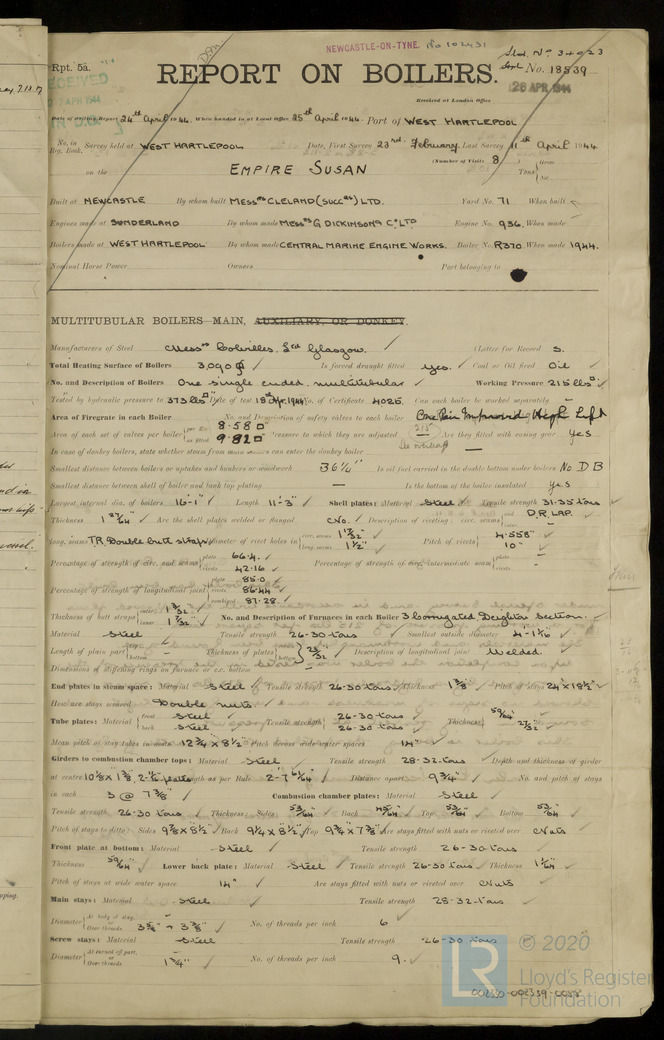 NEWCASTLE-ON-TYNE. No 102431
Std. No 34023
Rpt. 5a.
REPORT ON BOILERS.
No. 18539
RECEIVED
Received at London Office
26 APR 1944
Date of writing Report 24th April 1944. When handed in at Local Office 25th April 1944. Port of WEST HARTLEPOOL
No. in Reg. Book. Survey held at WEST HARTLEPOOL Date, First Survey 23rd February Last Survey 11th April 1944
(Number of Visits 8)
on the EMPIRE SUSAN Tons
Built at NEWCASTLE By whom built MESSRS CLELAND (SUCCRS) LTD. Yard No. 71 When built
Engines made at SUNDERLAND By whom made MESSRS G DICKINSON & CO LTD Engine No. 936. When made
Boilers made at WEST HARTLEPOOL By whom made CENTRAL MARINE ENGINE WORKS. Boiler No. R370 When made 1944.
Nominal Horse Power Owners Port belonging to
MULTITUBULAR BOILERS MAIN, AUXILIARY, OR DONKEY.
Manufacturers of Steel Messrs Colvilles Ltd Glasgow. (Letter for Record S.
Total Heating Surface of Boilers 3,090 Is forced draught fitted yes. Coal or Oil fired Oil
No. and Description of Boilers One single ended multitubular Working Pressure 215 lbs
Tested by hydraulic pressure to 373 lbs Date of test 18 Apr. 1944 No. of Certificate 4025. Can each boiler be worked separately -
Area of Firegrate in each Boiler No. and Description of safety valves to each boiler One Pair Improved High Lift
Area of each set of valves per boiler 8.58 9.82 Pressure to which they are adjusted 215 Are they fitted with easing gear yes
In case of donkey boilers, state whether steam from main boilers can enter the donkey boiler -
Smallest distance between boilers or uptakes and bunkers or woodwork 36½" Is oil fuel carried in the double bottom under boilers No DB
Smallest distance between shell of boiler and tank top plating - Is the bottom of the boiler insulated yes
Largest internal dia. of boilers 16'-1" Length 11'-3" Shell plates: Material Steel Tensile strength 31-35 tons
Thickness 1 27/64" Are the shell plates welded or flanged No. Description of riveting: circ. seams D.R. LAP.
long. seams T.R. Double butt straps Diameter of rivet holes in circ. seams 1 17/32" long. seams 1½" Pitch of rivets 4.558" 10"
Percentage of strength of circ. end seams plate 66.4. rivets 42.16 Percentage of strength of circ. intermediate seam plate - rivets -
Percentage of strength of longitudinal joint plate 85.0 rivets 86.44 combined 87.28
Thickness of butt straps outer 1 3/32" inner 1 7/32" No. and Description of Furnaces in each Boiler 3 corrugated Deighton Section.
Material Steel Tensile strength 26-30 tons Smallest outside diameter 4-1 1/16
Length of plain part top bottom Thickness of plates 23/32" Description of longitudinal joint Welded.
Dimensions of stiffening rings on furnace or c.c. bottom -
End plates in steam space: Material Steel Tensile strength 26-30 tons. Thickness 1 3/8 Pitch of stays 24" x 18½"
How are stays secured Double nuts
Tube plates: Material front Steel back Steel Tensile strength 26-30 tons 26-30 tons Thickness 59/64" 27/32
Mean pitch of stay tubes in nests 12¾ x 8½" Pitch across wide water spaces 14"
Girders to combustion chamber tops: Material Steel Tensile strength 28-32 tons Depth and thickness of girder
at centre 10⅛ x 1⅜ 2-½ plates Length as per Rule 2'-7 61/64" Distance apart 9¾" No. and pitch of stays
in each 3 @ 7⅞" Combustion chamber plates: Material Steel
Tensile strength 26-30 tons Thickness: Sides 53/64" Back 45/64" Top 53/64" Bottom 53/64
Pitch of stays to ditto: Sides 9⅞ x 8½" Back 9¼ x 8½" Top 9¾" x 7⅞" Are stays fitted with nuts or riveted over Nuts
Front plate at bottom: Material Steel Tensile strength 26-30 tons
Thickness 59/64" Lower back plate: Material Steel Tensile strength 26-30 tons Thickness 1/64"
Pitch of stays at wide water space 14" Are stays fitted with nuts or riveted over Nuts
Main stays: Material Steel Tensile strength 28-32 tons
Diameter At body of stay, or Over threads No. of threads per inch 6
Screw stays: Material Steel Tensile strength 26-30 tons
Diameter At turned off part, or Over threads 1¾" No. of threads per inch 9.
© 2020
LR
Lloyd's Register
Foundation